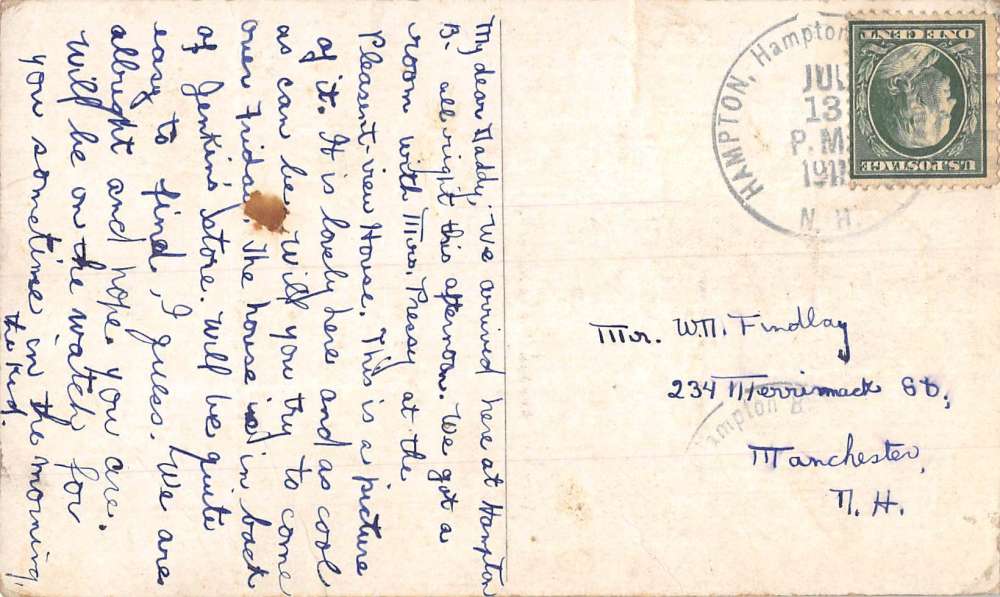 My dear Daddy, We arrived here at Hampton
B- all right this afternoon. We got a
room with Mrs. Pressy at the
Pleasant-view House. This is a picture
of it. It is lovely here and as cool
as can be. Will you try to come
over Friday. The house is in back
of Jenkins' store. Will be quite
easy to find, I guess. We are
allright and hope you are.
Will be on the watch for
you sometime in the morning.
the kid.
HAMPTON, Hampton
JUL
13
P.M.
N. H.
U.S. POSTAGE
ONE CENT
Mr. W.N. Findlay
234 Merrimack St.,
ampton B
Manchester,
N. H.